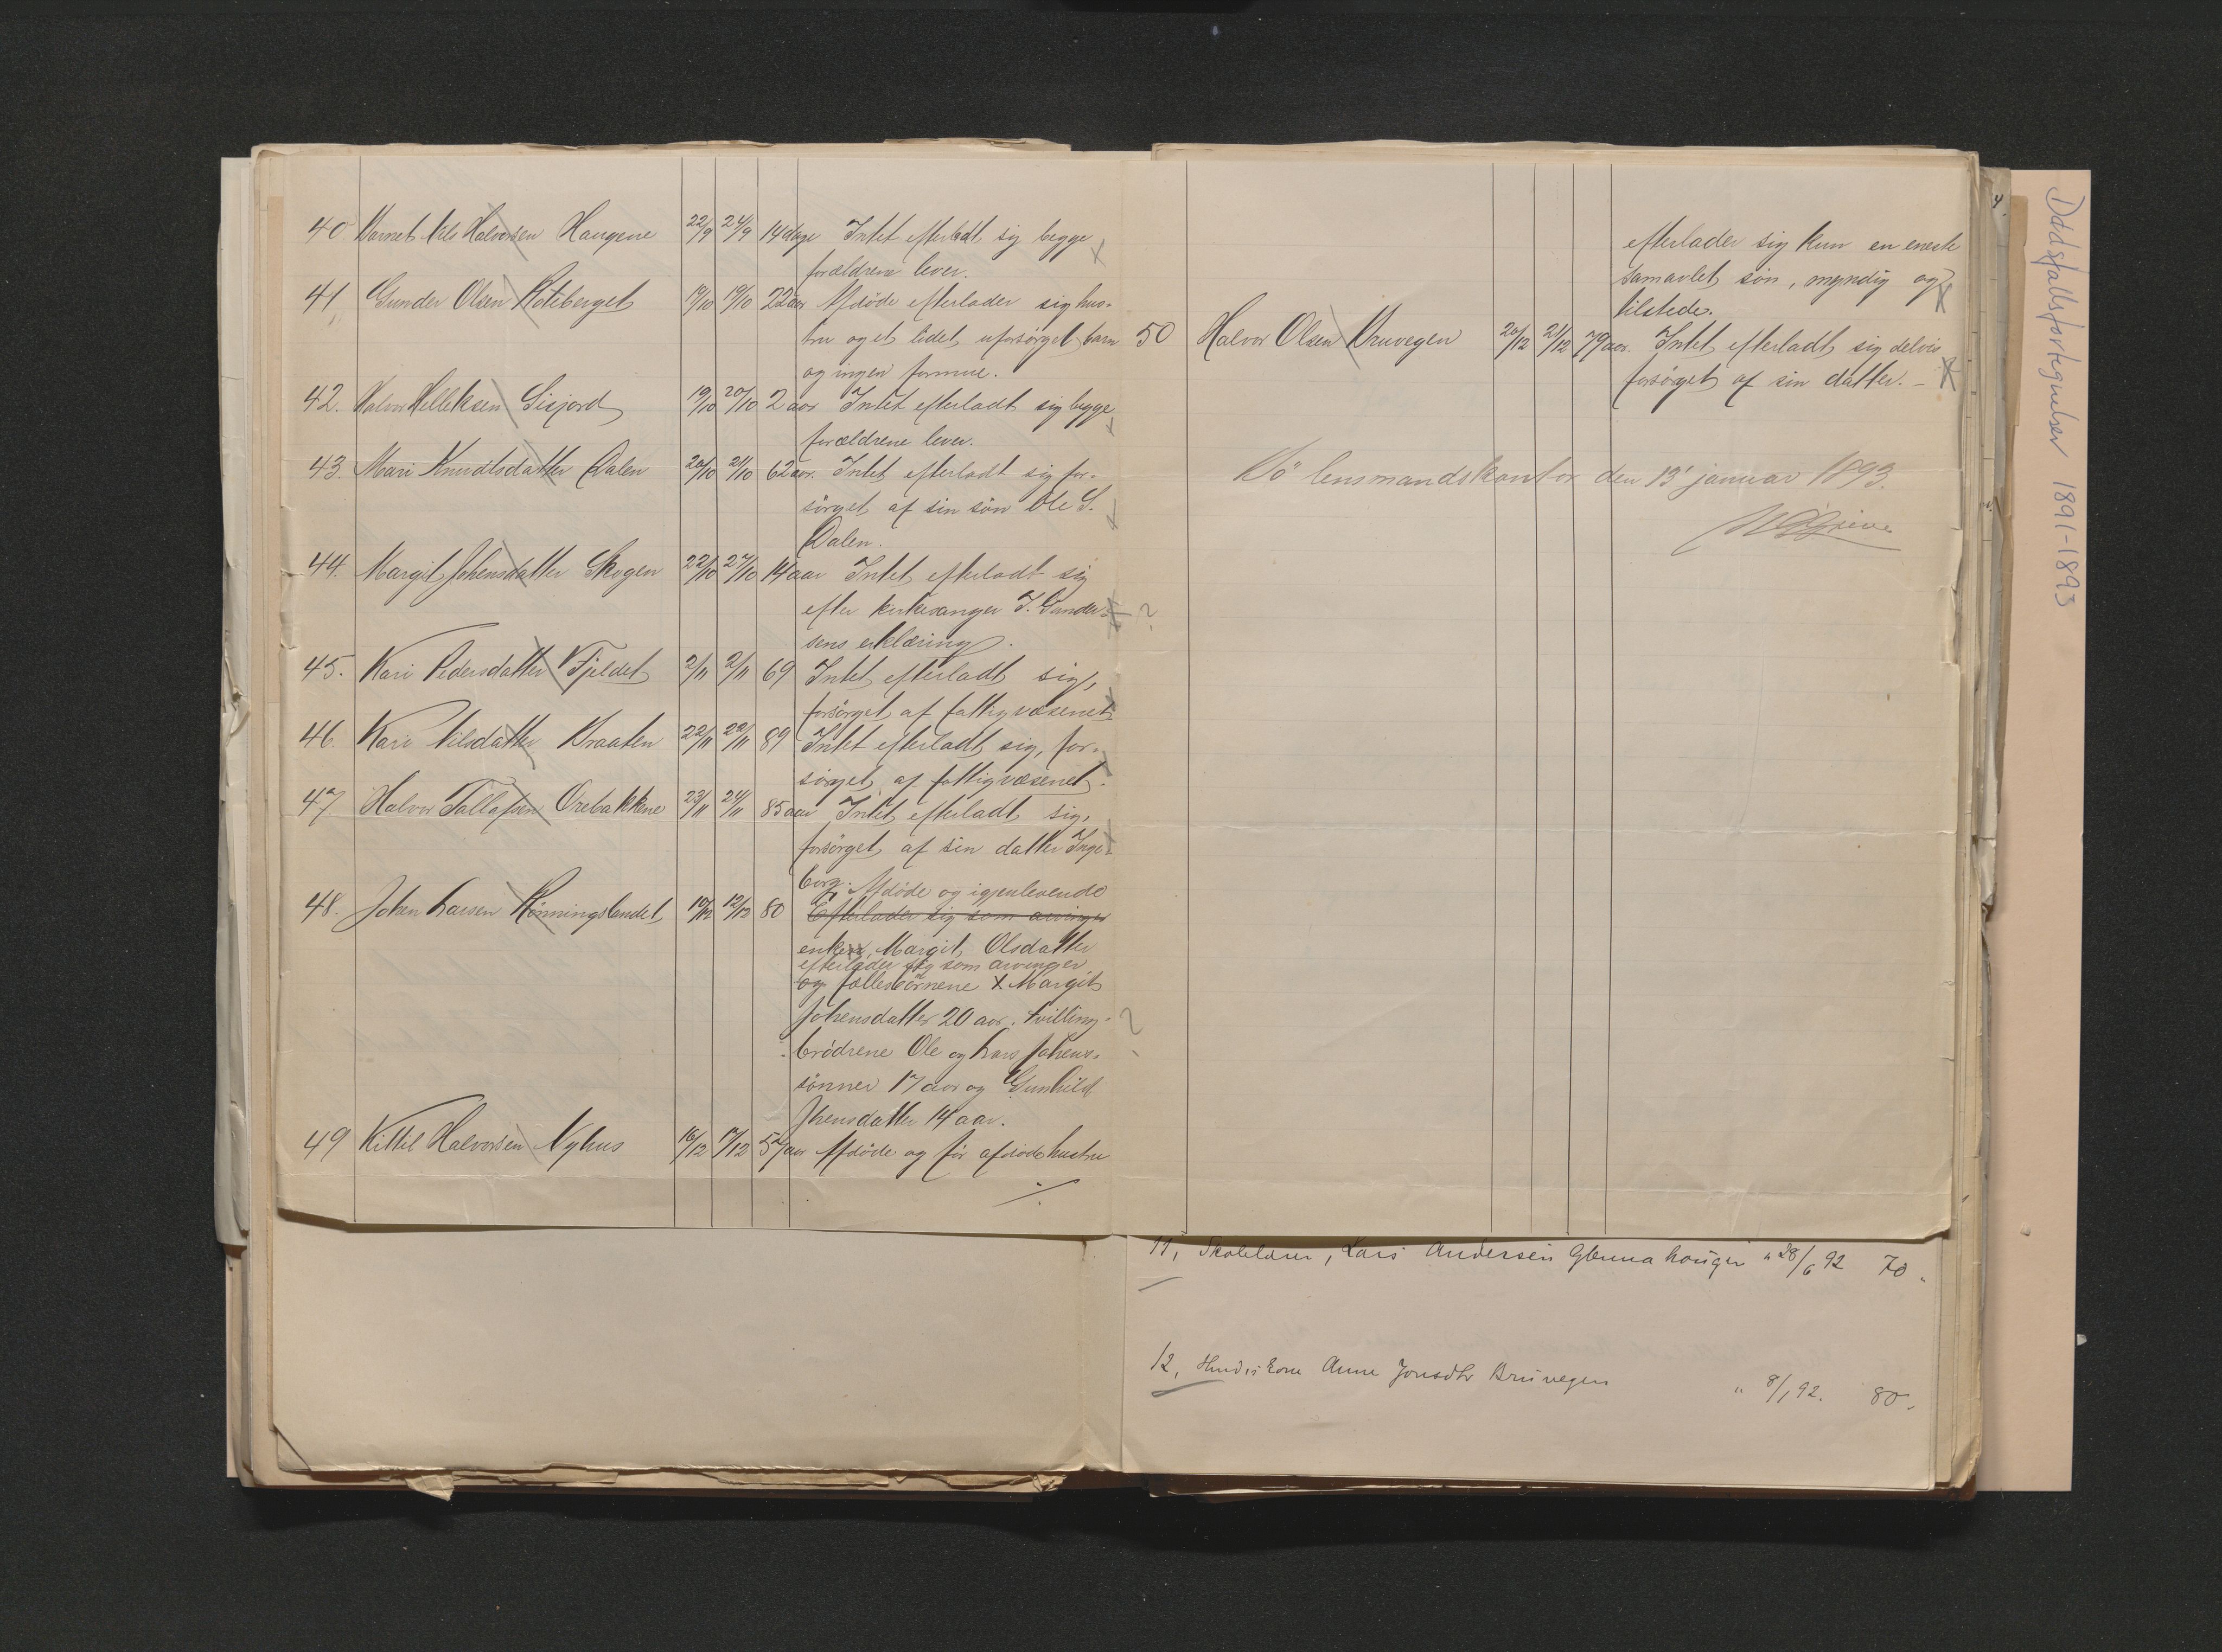 40 Barnet Nils Halvorsen Haugene 22/9 24/9 14 dage Intet efterladt sig begge
forældrene lever.
41 Gunder Olsen Koteberget 19/10 19/10 22 aar Afdöde efterlader sig hus-
tru og et lidet uforsörget barn
og ingen formue.
42. Halvor Helleksen Sisjord 19/10 20/10 2 aar Intet efterladt sig begge
forældrene lever.
43. Mari Knudtsdatter Dalen 20/10 21/10 62 aar. Intet efterladt sig for-
sörget af sin sön Ole S.
Dalen.
44. Margit Johensdatter Skogen 22/10 27/10 14 aar Intet efterladt sig
efter kirkesanger J. Gunder- ?
sens erklæring.
45. Kari Pedersdatter Fjeldet 2/11 2/11 69 Intet efterladt sig,
forsörget af fattigvæsenet
46. Kari Nilsdatter Braaten 22/11 22/11 89 Intet efterladt sig, for-
sörget af fattigvæsenet.
47 Halvor Tallafsen Orebakkene 23/11 24/11 85 aar Intet efterladt sig,
forsörget af sin datter Inge-
borg.
Afdöde og igjenlevende
48. Johen Larsen Rönningslandet 10/12 12/12 80 Efterlader sig som arvinger
enke, Margit Olsdatter
efterlader sig som arvinger
og fællesbörnene x Margit
Johensdatter 20 aar. tvilling- ?
brödrene Ole og Lars Johens-
sönner 17 aar og Gunhild
Jhensdatter 14 aar.
49 Kittil Halvorsen Nyhus 16/12 17/12 57 aar Afdöde og för afdöde hustru
./.
efterlader sig kun en eneste
samavlet sön, myndig og
tilstede.
50 Halvor Olsen Bruvegen 20/12 21/12 79 aar. Intet efterladt sig delvis
forsörget af sin datter. -
Bö lensmandskontor den 13' januar 1893.
11, Skolelærer, Lars Andersen Glenna hougen " 28/6 92 70 "
12, Anne Jonsdtr Bruvegen " 8/1 92. 80 "
Dødsfallsfortegnelser 1891-1893